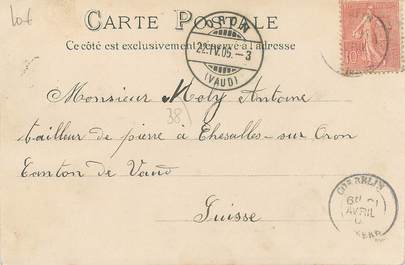 lot
CARTE POSTALE
Ce côté est exclusivement réservé à l'adresse
ORON
22.IV.05.-3
(VAUD)
10
Monsieur Moly Antoine
38
tailleur de pierre à Chesalles-sur Oron
Canton de Vaud
Suisse
AVRIL